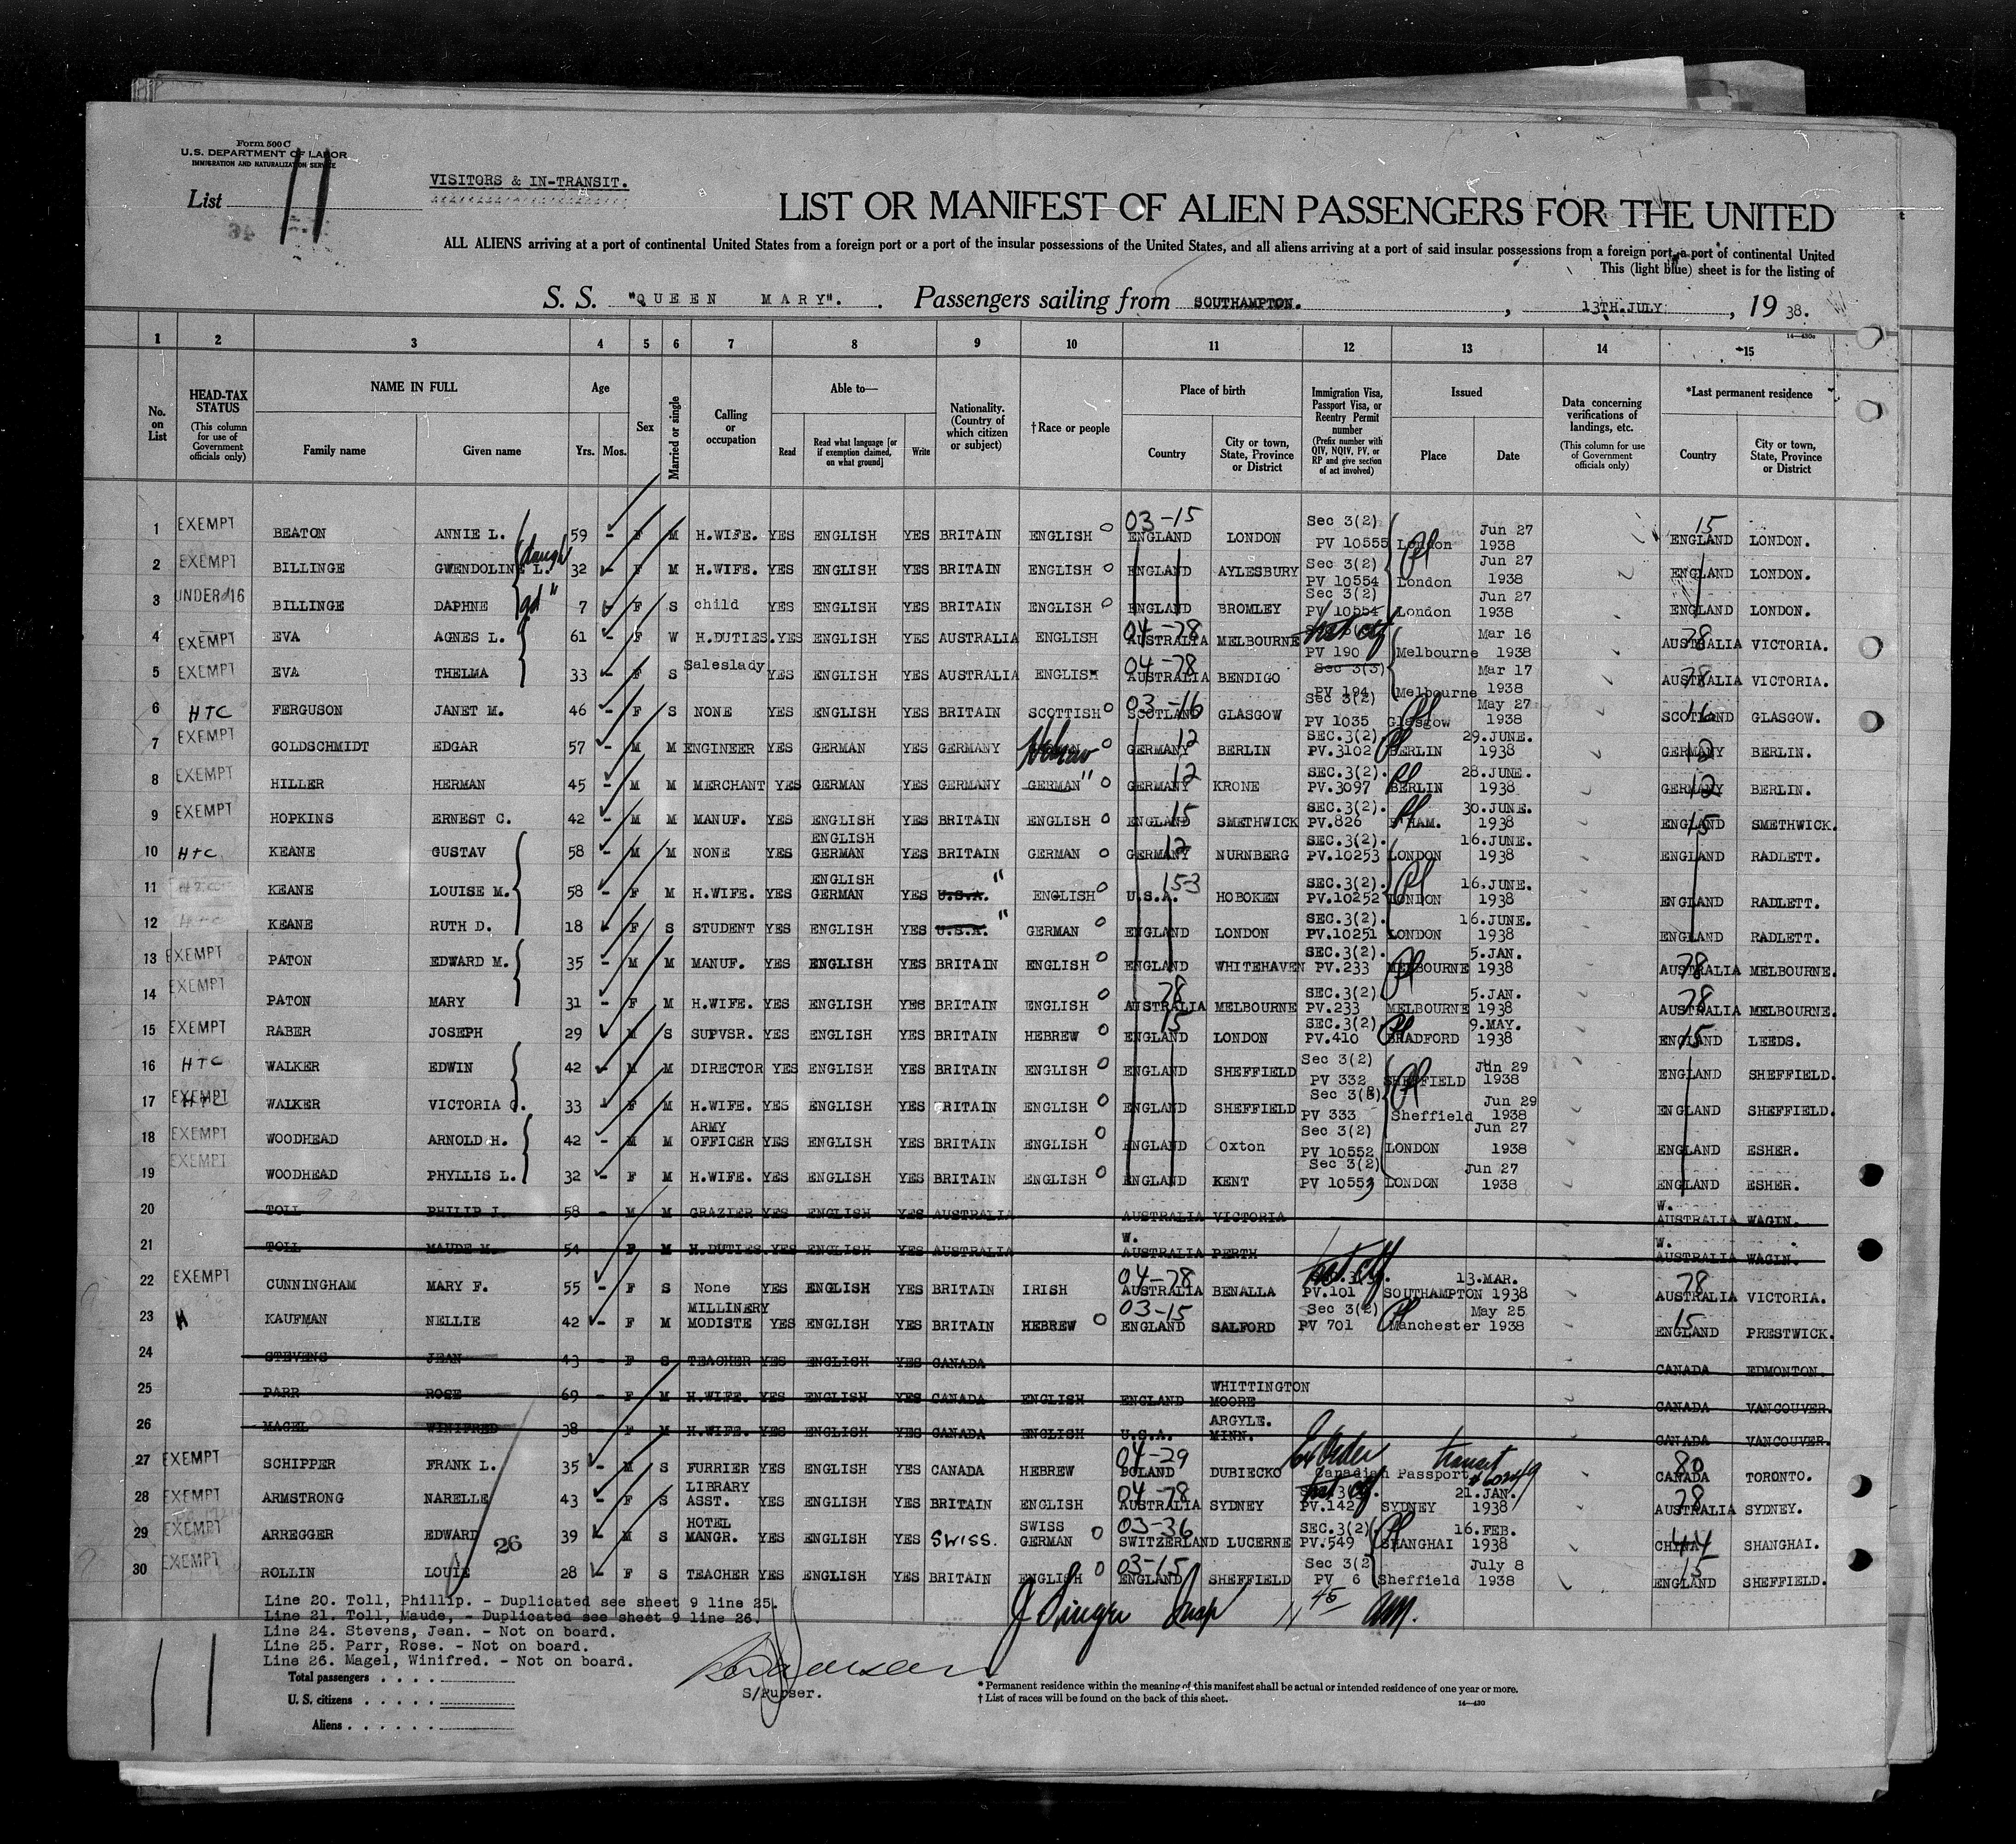 Form 500 C
U.S. DEPARTMENT OF LABOR
IMMIGRATION AND NATURALIZATION SERVICE
List 11
VISITORS & IN-TRANSIT.
LIST OR MANIFEST OF ALIEN PASSENGERS FOR THE UNITED
ALL ALIENS arriving at a port of continental United States from a foreign port or a port of the insular possessions of the United States, and all aliens arriving at a port of said insular possessions from a foreign port, a port of continental United
This (light blue) sheet is for the listing of
S. S. "QUEEN MARY". Passengers sailing from SOUTHAMPTON. , 13TH.JULY , 19 38.
14—430a
1 2 3 4 5 6 7 8 9 10 11 12 13 14 15
No. on List
HEAD-TAX STATUS (This column for use of Government officials only)
NAME IN FULL Family name Given name
Age Yrs. Mos.
Sex
Married or single
Calling or occupation
Able to— Read Read what language [or if exemption claimed, on what ground] Write
Nationality. (Country of which citizen or subject)
†Race or people
Place of birth Country City or town, State, Province or District
Immigration Visa, Passport Visa, or Reentry Permit number (Prefix number with QIV, NQIV, PV, or RP and give section of act involved)
Issued Place Date
Data concerning verifications of landings, etc. (This column for use of Government officials only)
*Last permanent residence Country City or town, State, Province or District
1 EXEMPT BEATON ANNIE L. 59 - F M H.WIFE. YES ENGLISH YES BRITAIN ENGLISH 03-15 ENGLAND LONDON Sec 3(2) PV 10555 London Jun 27 1938 15 ENGLAND LONDON.
2 EXEMPT BILLINGE GWENDOLINE L. daugh 32 - F M H.WIFE. YES ENGLISH YES BRITAIN ENGLISH ENGLAND AYLESBURY Sec 3(2) PV 10554 London Jun 27 1938 ENGLAND LONDON.
3 UNDER 16 BILLINGE DAPHNE gd " 7 - F S child YES ENGLISH YES BRITAIN ENGLISH ENGLAND BROMLEY Sec 3(2) PV 10554 London Jun 27 1938 ENGLAND LONDON.
4 EXEMPT EVA AGNES L. 61 - F W H.DUTIES. YES ENGLISH YES AUSTRALIA ENGLISH 04-78 AUSTRALIA MELBOURNE PV 190 Melbourne Mar 16 1938 78 AUSTRALIA VICTORIA.
5 EXEMPT EVA THELMA 33 - F S Saleslady YES ENGLISH YES AUSTRALIA ENGLISH 04-78 AUSTRALIA BENDIGO Sec 3(3) PV 194 Melbourne Mar 17 1938 78 AUSTRALIA VICTORIA.
6 HTC FERGUSON JANET M. 46 - F S NONE YES ENGLISH YES BRITAIN SCOTTISH 03-16 SCOTLAND GLASGOW Sec 3(2) PV 1035 Glasgow May 27 1938 16 SCOTLAND GLASGOW.
7 EXEMPT GOLDSCHMIDT EDGAR 57 - M M ENGINEER YES GERMAN YES GERMANY Hebrew 12 GERMANY BERLIN SEC.3(2). PV.3102 BERLIN 29.JUNE. 1938 12 GERMANY BERLIN.
8 EXEMPT HILLER HERMAN 45 - M M MERCHANT YES GERMAN YES GERMANY GERMAN " 12 GERMANY KRONE SEC.3(2). PV.3097 BERLIN 28.JUNE. 1938 12 GERMANY BERLIN.
9 EXEMPT HOPKINS ERNEST C. 42 - M M MANUF. YES ENGLISH YES BRITAIN ENGLISH 15 ENGLAND SMETHWICK SEC.3(2). PV.826 B'HAM. 30.JUNE. 1938 15 ENGLAND SMETHWICK.
10 HTC KEANE GUSTAV 58 - M M NONE YES ENGLISH GERMAN YES BRITAIN GERMAN 12 GERMANY NURNBERG SEC.3(2). PV.10253 LONDON 16.JUNE. 1938 ENGLAND RADLETT.
11 KEANE LOUISE M. 58 - F M H.WIFE. YES ENGLISH GERMAN YES U.S.A. " ENGLISH 153 U.S.A. HOBOKEN SEC.3(2). PV.10252 LONDON 16.JUNE. 1938 ENGLAND RADLETT.
12 HTC KEANE RUTH D. 18 - F S STUDENT YES ENGLISH YES U.S.A. " GERMAN ENGLAND LONDON SEC.3(2). PV.10251 LONDON 16.JUNE. 1938 ENGLAND RADLETT.
13 EXEMPT PATON EDWARD M. 35 - M M MANUF. YES ENGLISH YES BRITAIN ENGLISH ENGLAND WHITEHAVEN SEC.3(2). PV.233 MELBOURNE 5.JAN. 1938 78 AUSTRALIA MELBOURNE.
14 EXEMPT PATON MARY 31 - F M H.WIFE. YES ENGLISH YES BRITAIN ENGLISH 78 AUSTRALIA MELBOURNE SEC.3(2). PV.233 MELBOURNE 5.JAN. 1938 78 AUSTRALIA MELBOURNE.
15 EXEMPT RABER JOSEPH 29 - M S SUPVSR. YES ENGLISH YES BRITAIN HEBREW 15 ENGLAND LONDON SEC.3(2). PV.410 BRADFORD 9.MAY. 1938 15 ENGLAND LEEDS.
16 HTC WALKER EDWIN 42 - M M DIRECTOR YES ENGLISH YES BRITAIN ENGLISH ENGLAND SHEFFIELD Sec 3(2) PV 332 SHEFFIELD Jun 29 1938 ENGLAND SHEFFIELD.
17 EXEMPT HTC WALKER VICTORIA 33 - F M H.WIFE. YES ENGLISH YES BRITAIN ENGLISH ENGLAND SHEFFIELD Sec 3(2) PV 333 Sheffield Jun 29 1938 ENGLAND SHEFFIELD.
18 EXEMPT WOODHEAD ARNOLD H. 42 - M M ARMY OFFICER YES ENGLISH YES BRITAIN ENGLISH ENGLAND Coxton Sec 3(2) PV 10552 LONDON Jun 27 1938 ENGLAND ESHER.
19 EXEMPT WOODHEAD PHYLLIS L. 32 - F M H.WIFE. YES ENGLISH YES BRITAIN ENGLISH ENGLAND KENT Sec 3(2) PV 10553 LONDON Jun 27 1938 ENGLAND ESHER.
20 TOLL PHILIP J. 58 - M M GRAZIER YES ENGLISH YES AUSTRALIA AUSTRALIA VICTORIA W. AUSTRALIA WAGIN.
21 TOLL MAUDE M. 54 - F M H.DUTIES. YES ENGLISH YES AUSTRALIA W. AUSTRALIA PERTH W. AUSTRALIA WAGIN.
22 EXEMPT CUNNINGHAM MARY F. 55 - F S None YES ENGLISH YES BRITAIN IRISH 04-78 AUSTRALIA BENALLA PV.101 SOUTHAMPTON 13.MAR. 1938 78 AUSTRALIA VICTORIA.
23 H KAUFMAN NELLIE 42 - F M MILLINERY MODISTE YES ENGLISH YES BRITAIN HEBREW 03-15 ENGLAND SALFORD Sec 3(2) PV 701 Manchester May 25 1938 15 ENGLAND PRESTWICK.
24 STEVENS JEAN 43 - F S TEACHER YES ENGLISH YES CANADA CANADA EDMONTON.
25 PARR ROSE 69 - F M H.WIFE. YES ENGLISH YES CANADA ENGLISH ENGLAND WHITTINGTON MOORE CANADA VANCOUVER.
26 MAGEL WINIFRED 38 - F M H.WIFE. YES ENGLISH YES CANADA ENGLISH U.S.A. ARGYLE. MINN. CANADA VANCOUVER.
27 EXEMPT SCHIPPER FRANK L. 35 - M S FURRIER YES ENGLISH YES CANADA HEBREW 04-29 POLAND DUBIECKO Ex Order transit Canadian Passport 80 CANADA TORONTO.
28 EXEMPT ARMSTRONG NARELLE 43 - F S LIBRARY ASST. YES ENGLISH YES BRITAIN ENGLISH 04-78 AUSTRALIA SYDNEY PV.142 SYDNEY 21.JAN. 1938 78 AUSTRALIA SYDNEY.
29 EXEMPT ARREGGER EDWARD 39 - M S HOTEL MANGR. YES ENGLISH YES SWISS. SWISS GERMAN 03-36 SWITZERLAND LUCERNE SEC.3(2) PV.549 SHANGHAI 16.FEB. 1938 44 CHINA SHANGHAI.
26
30 EXEMPT ROLLIN LOUIE 28 - F S TEACHER YES ENGLISH YES BRITAIN ENGLISH 03-15 ENGLAND SHEFFIELD Sec 3(2) PV 6 Sheffield July 8 1938 15 ENGLAND SHEFFIELD.
Line 20. Toll, Phillip. - Duplicated see sheet 9 line 25.
Line 21. Toll, Maude, - Duplicated see sheet 9 line 26.
Line 24. Stevens, Jean. - Not on board.
Line 25. Parr, Rose. - Not on board.
Line 26. Magel, Winifred. - Not on board.
Total passengers . . . .
U. S. citizens . . . . .
Aliens . . . . . .
S/Purser.
J Singer Insp 11 45 AM.
* Permanent residence within the meaning of this manifest shall be actual or intended residence of one year or more.
† List of races will be found on the back of this sheet.
14—430
11